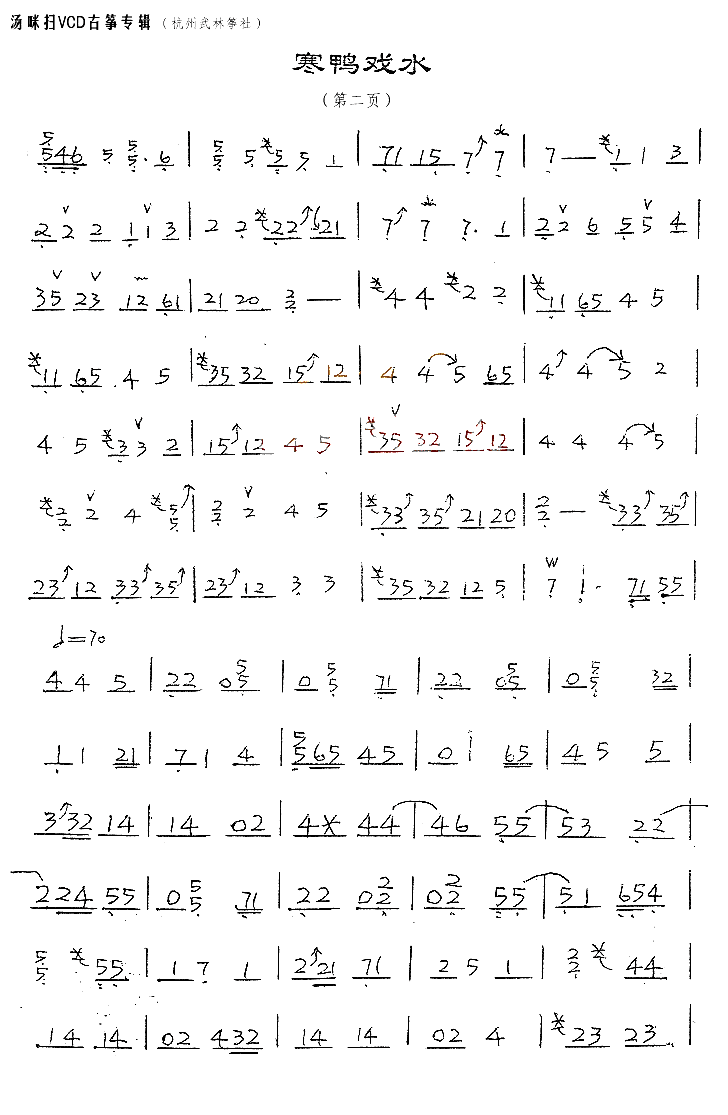 汤咪扫VCD古筝专辑（杭州武林筝社）
寒鸭戏水
（第二页）
5 546 5 5 5. 6 | 5 5 5 5 5 1 | 71 15 7 7 | 7 — 1 1 3 |
2 2 2 1 1 3 | 2 2 22 21 | 7 7 7. 1 | 2 2 6 5 5 4 |
35 23 12 61 | 21 20 2 2 — | 4 4 2 2 | 11 65 4 5 |
11 65 4 5 | 35 32 15 12 | 4 4 5 65 | 4 4 5 2 |
4 5 3 3 2 | 15 12 4 5 | 35 32 15 12 | 4 4 4 5 |
2 2 2 4 5 5 | 2 2 2 4 5 | 33 35 21 20 | 2 2 — 33 35 |
23 12 33 35 | 23 12 3 3 | 35 32 12 5 | 7 i. 71 55 |
=70
4 4 5 | 22 0 5 5 | 0 5 5 71 | 22 0 5 5 | 0 5 5 32 |
1 1 21 | 7 1 4 | 5 5 65 45 | 0 i 65 | 4 5 5 |
3 32 14 | 14 02 | 4X 44 | 46 55 | 53 22 |
224 55 | 0 5 5 71 | 22 0 2 2 | 0 2 2 55 | 51 654 |
5 5 55 | 1 7 1 | 2 21 71 | 2 5 1 | 2 2 44 |
14 14 | 02 432 | 14 14 | 02 4 | 23 23 |